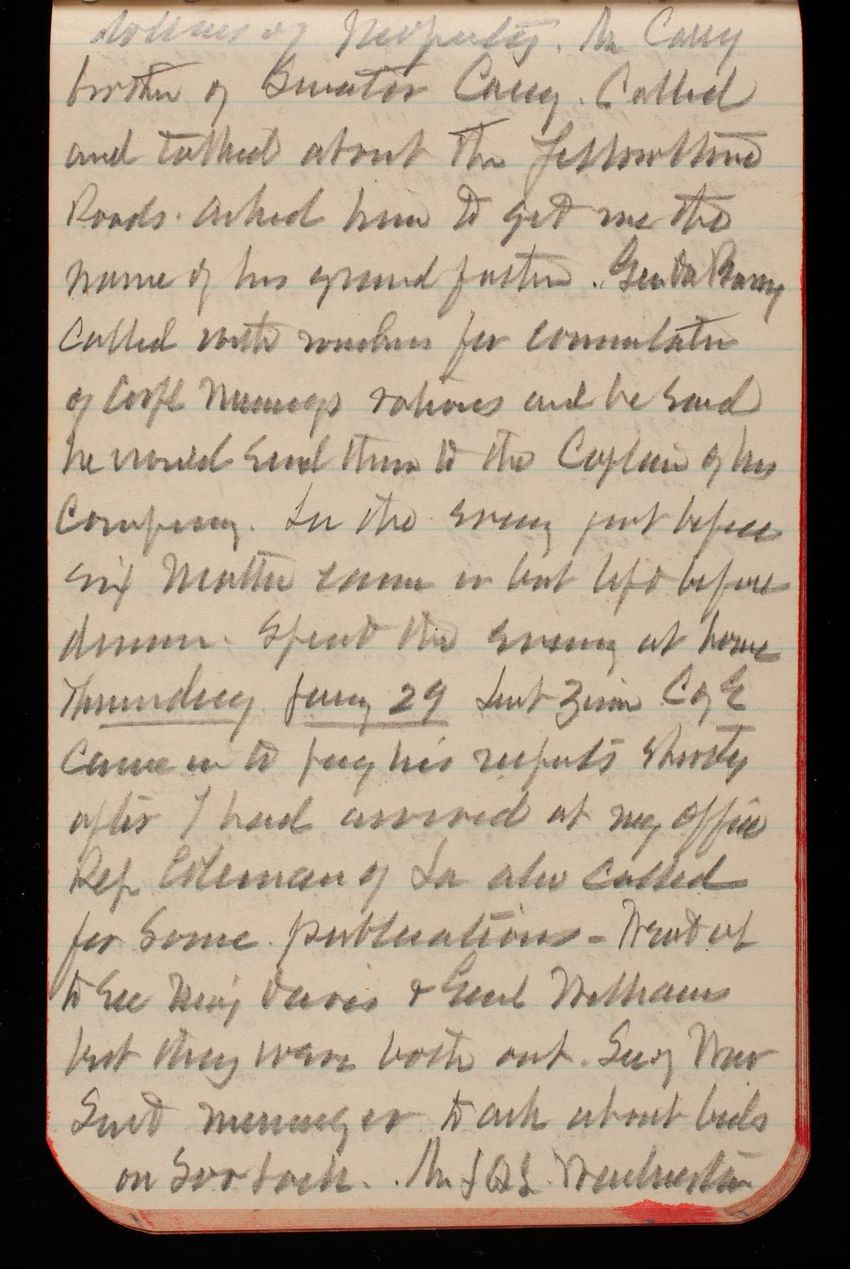 dollars of property. Mr Carey
brother of Senator Carey. Called
and talked about the Yellowstone
Roads. Asked him to get me the
name of his grand father. Genl Du Barry
Called with vouchers for commutation
of Corpl rations and he said
he would send them to the Captain of his
Company. In the evening just before
six Mattie came in but left before
dinner. Spent the evening at home
Thursday Jany 29 Lieut Zinn Co E
Came in to pay his respects shortly
after I had arrived at my office
Rep Coleman of La also called
for some publications - Went up
to see Maj Davis & Genl Williams
but they were both out. Secy War
sent messenger to ask about bids
on Mr Winchester